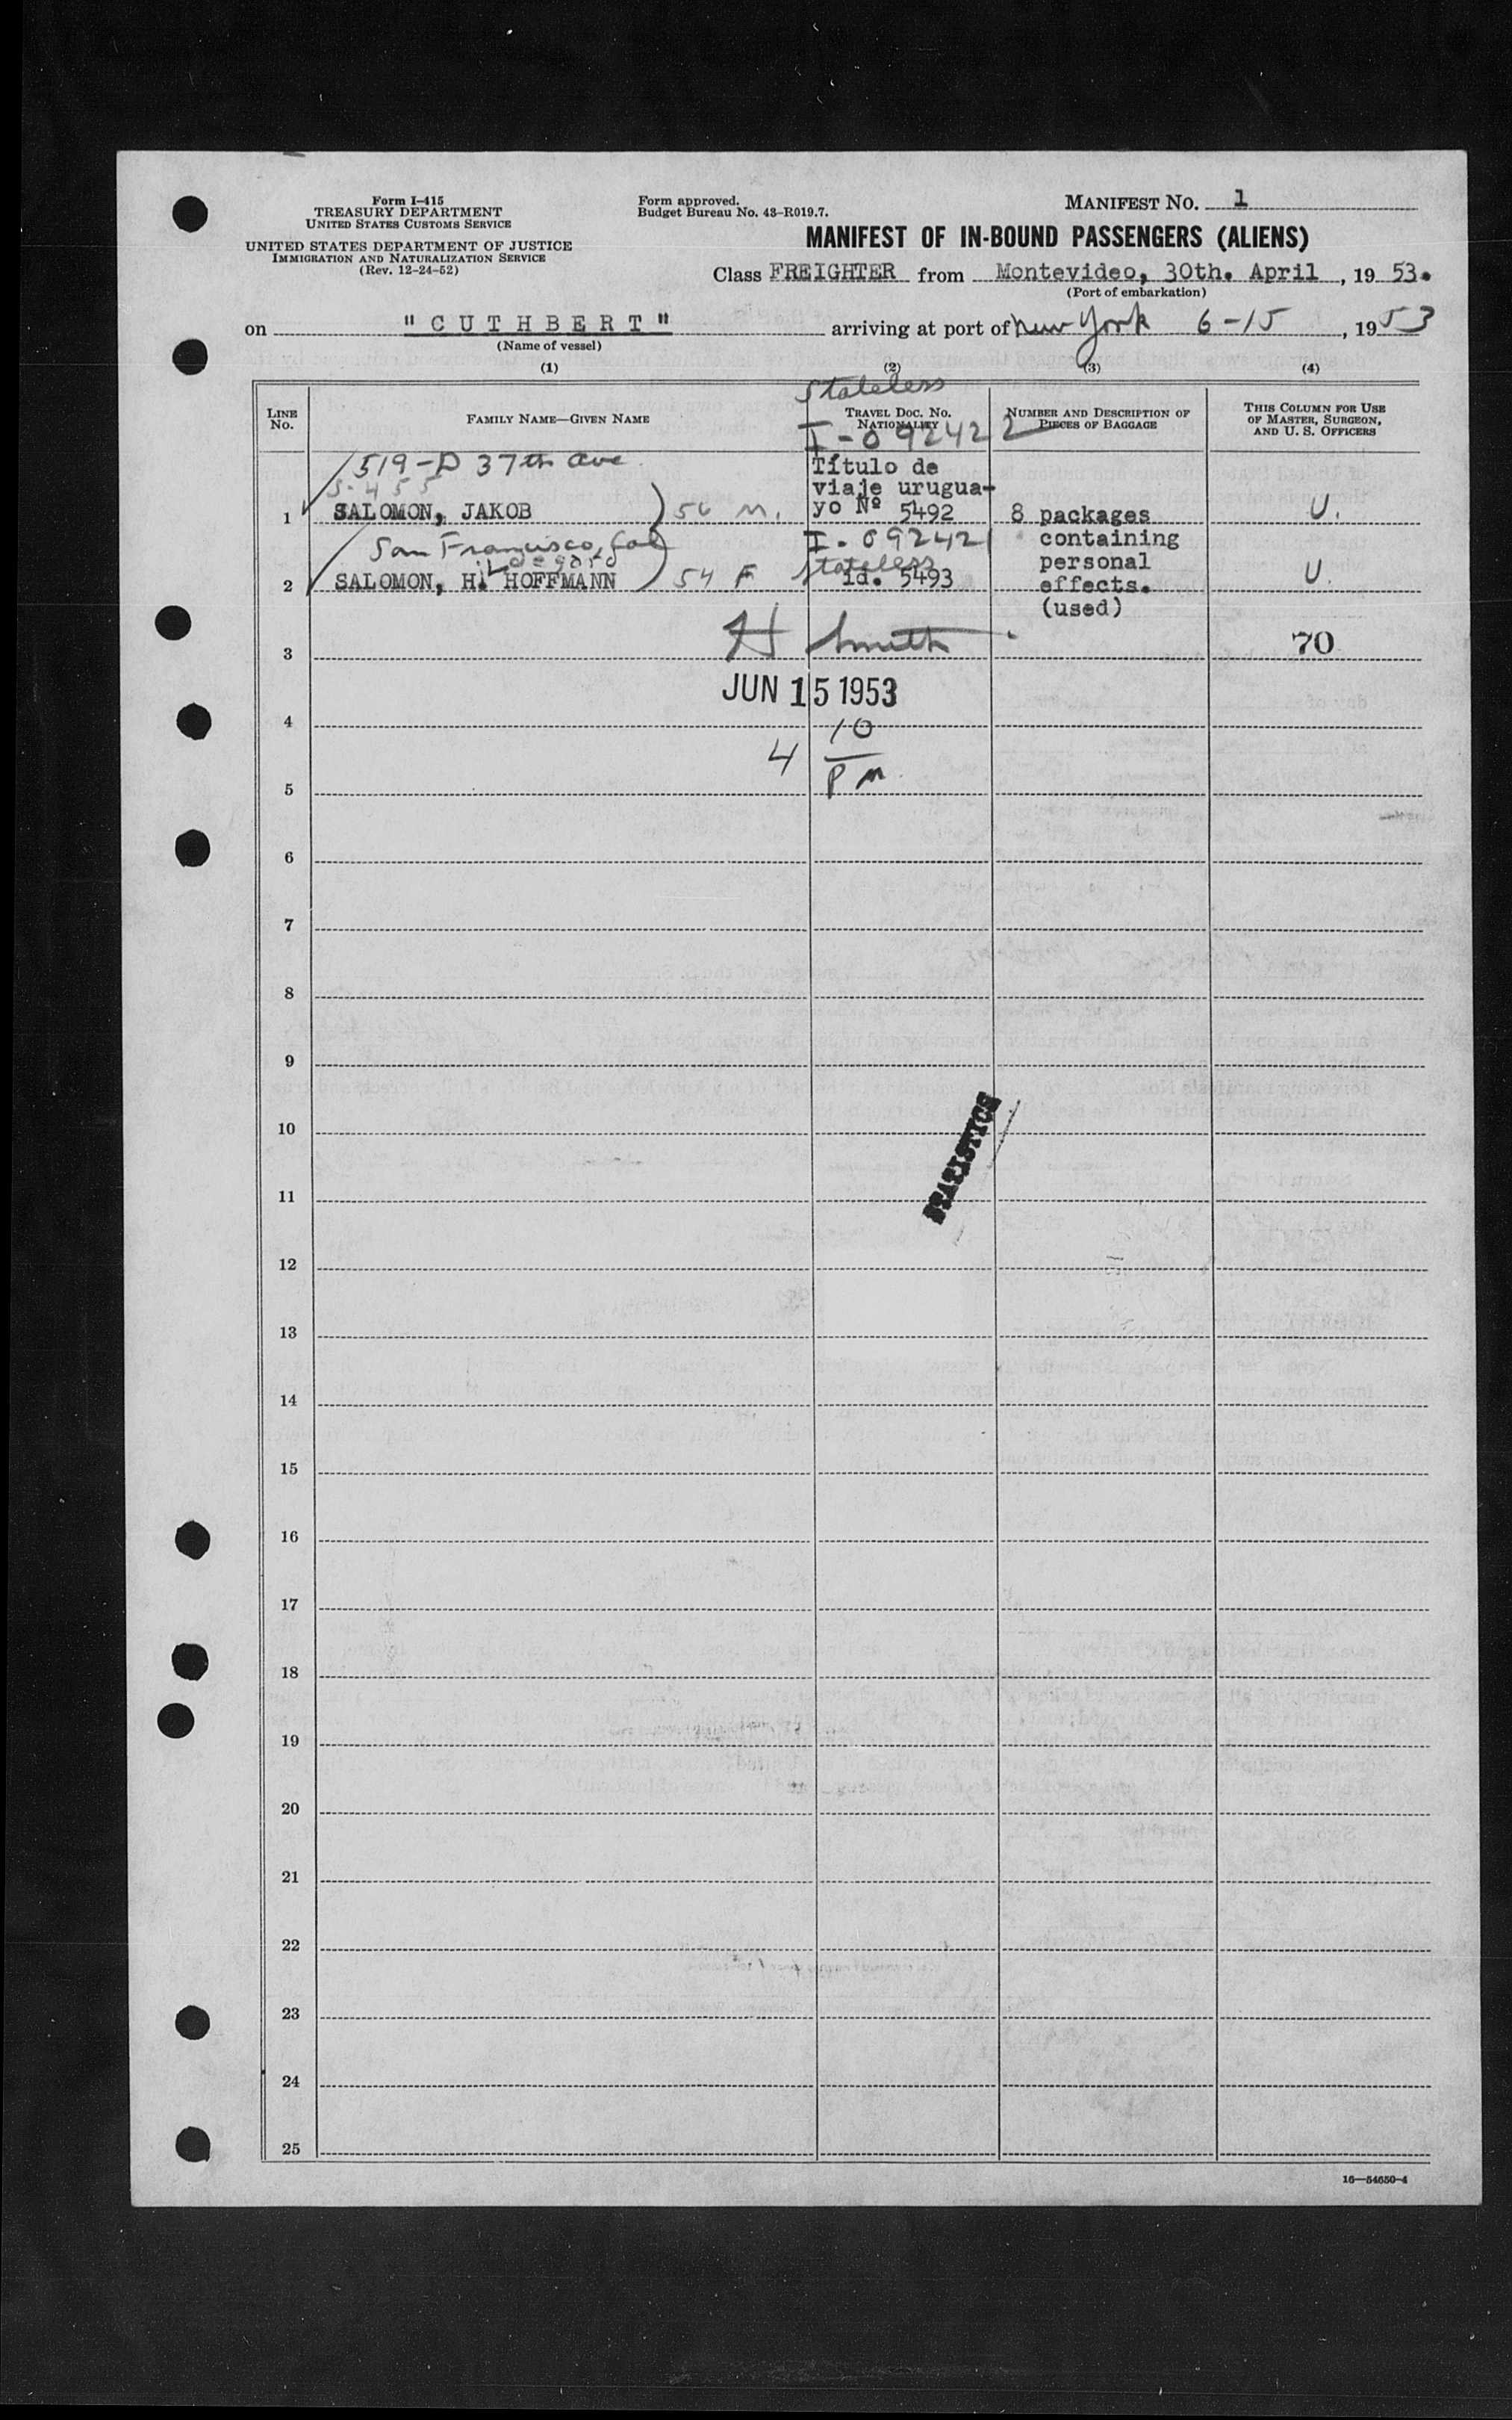 Form I-415
TREASURY DEPARTMENT
UNITED STATES CUSTOMS SERVICE
UNITED STATES DEPARTMENT OF JUSTICE
IMMIGRATION AND NATURALIZATION SERVICE
(Rev. 12-24-52)
Form approved.
Budget Bureau No. 43-R019.7.
MANIFEST NO. 1
MANIFEST OF IN-BOUND PASSENGERS (ALIENS)
Class FREIGHTER from Montevideo, 30th. April, 19 53.
(Port of embarkation)
on "CUTHBERT" arriving at port of New York 6-15, 1953
(Name of vessel)
(1) (2) (3) (4)
Stateless
LINE No.
FAMILY NAME—GIVEN NAME
TRAVEL DOC. NO. NATIONALITY
NUMBER AND DESCRIPTION OF PIECES OF BAGGAGE
THIS COLUMN FOR USE OF MASTER, SURGEON, AND U. S. OFFICERS
I-092422
1519-D 37th Ave
S-455
Título de
viaje urugua-
1 SALOMON, JAKOB 56 M. yo Nº 5492 8 packages U.
San Francisco, Cal I-092421 containing
ildegard Stateless personal
2 SALOMON, H. HOFFMANN 54 F id. 5493 effects. U.
(used)
H Smith
3 70
JUN 15 1953
4
4 10 PM
5
6
7
8
9
10
STATISTICS
11
12
13
14
15
16
17
18
19
20
21
22
23
24
25
16—54650-4